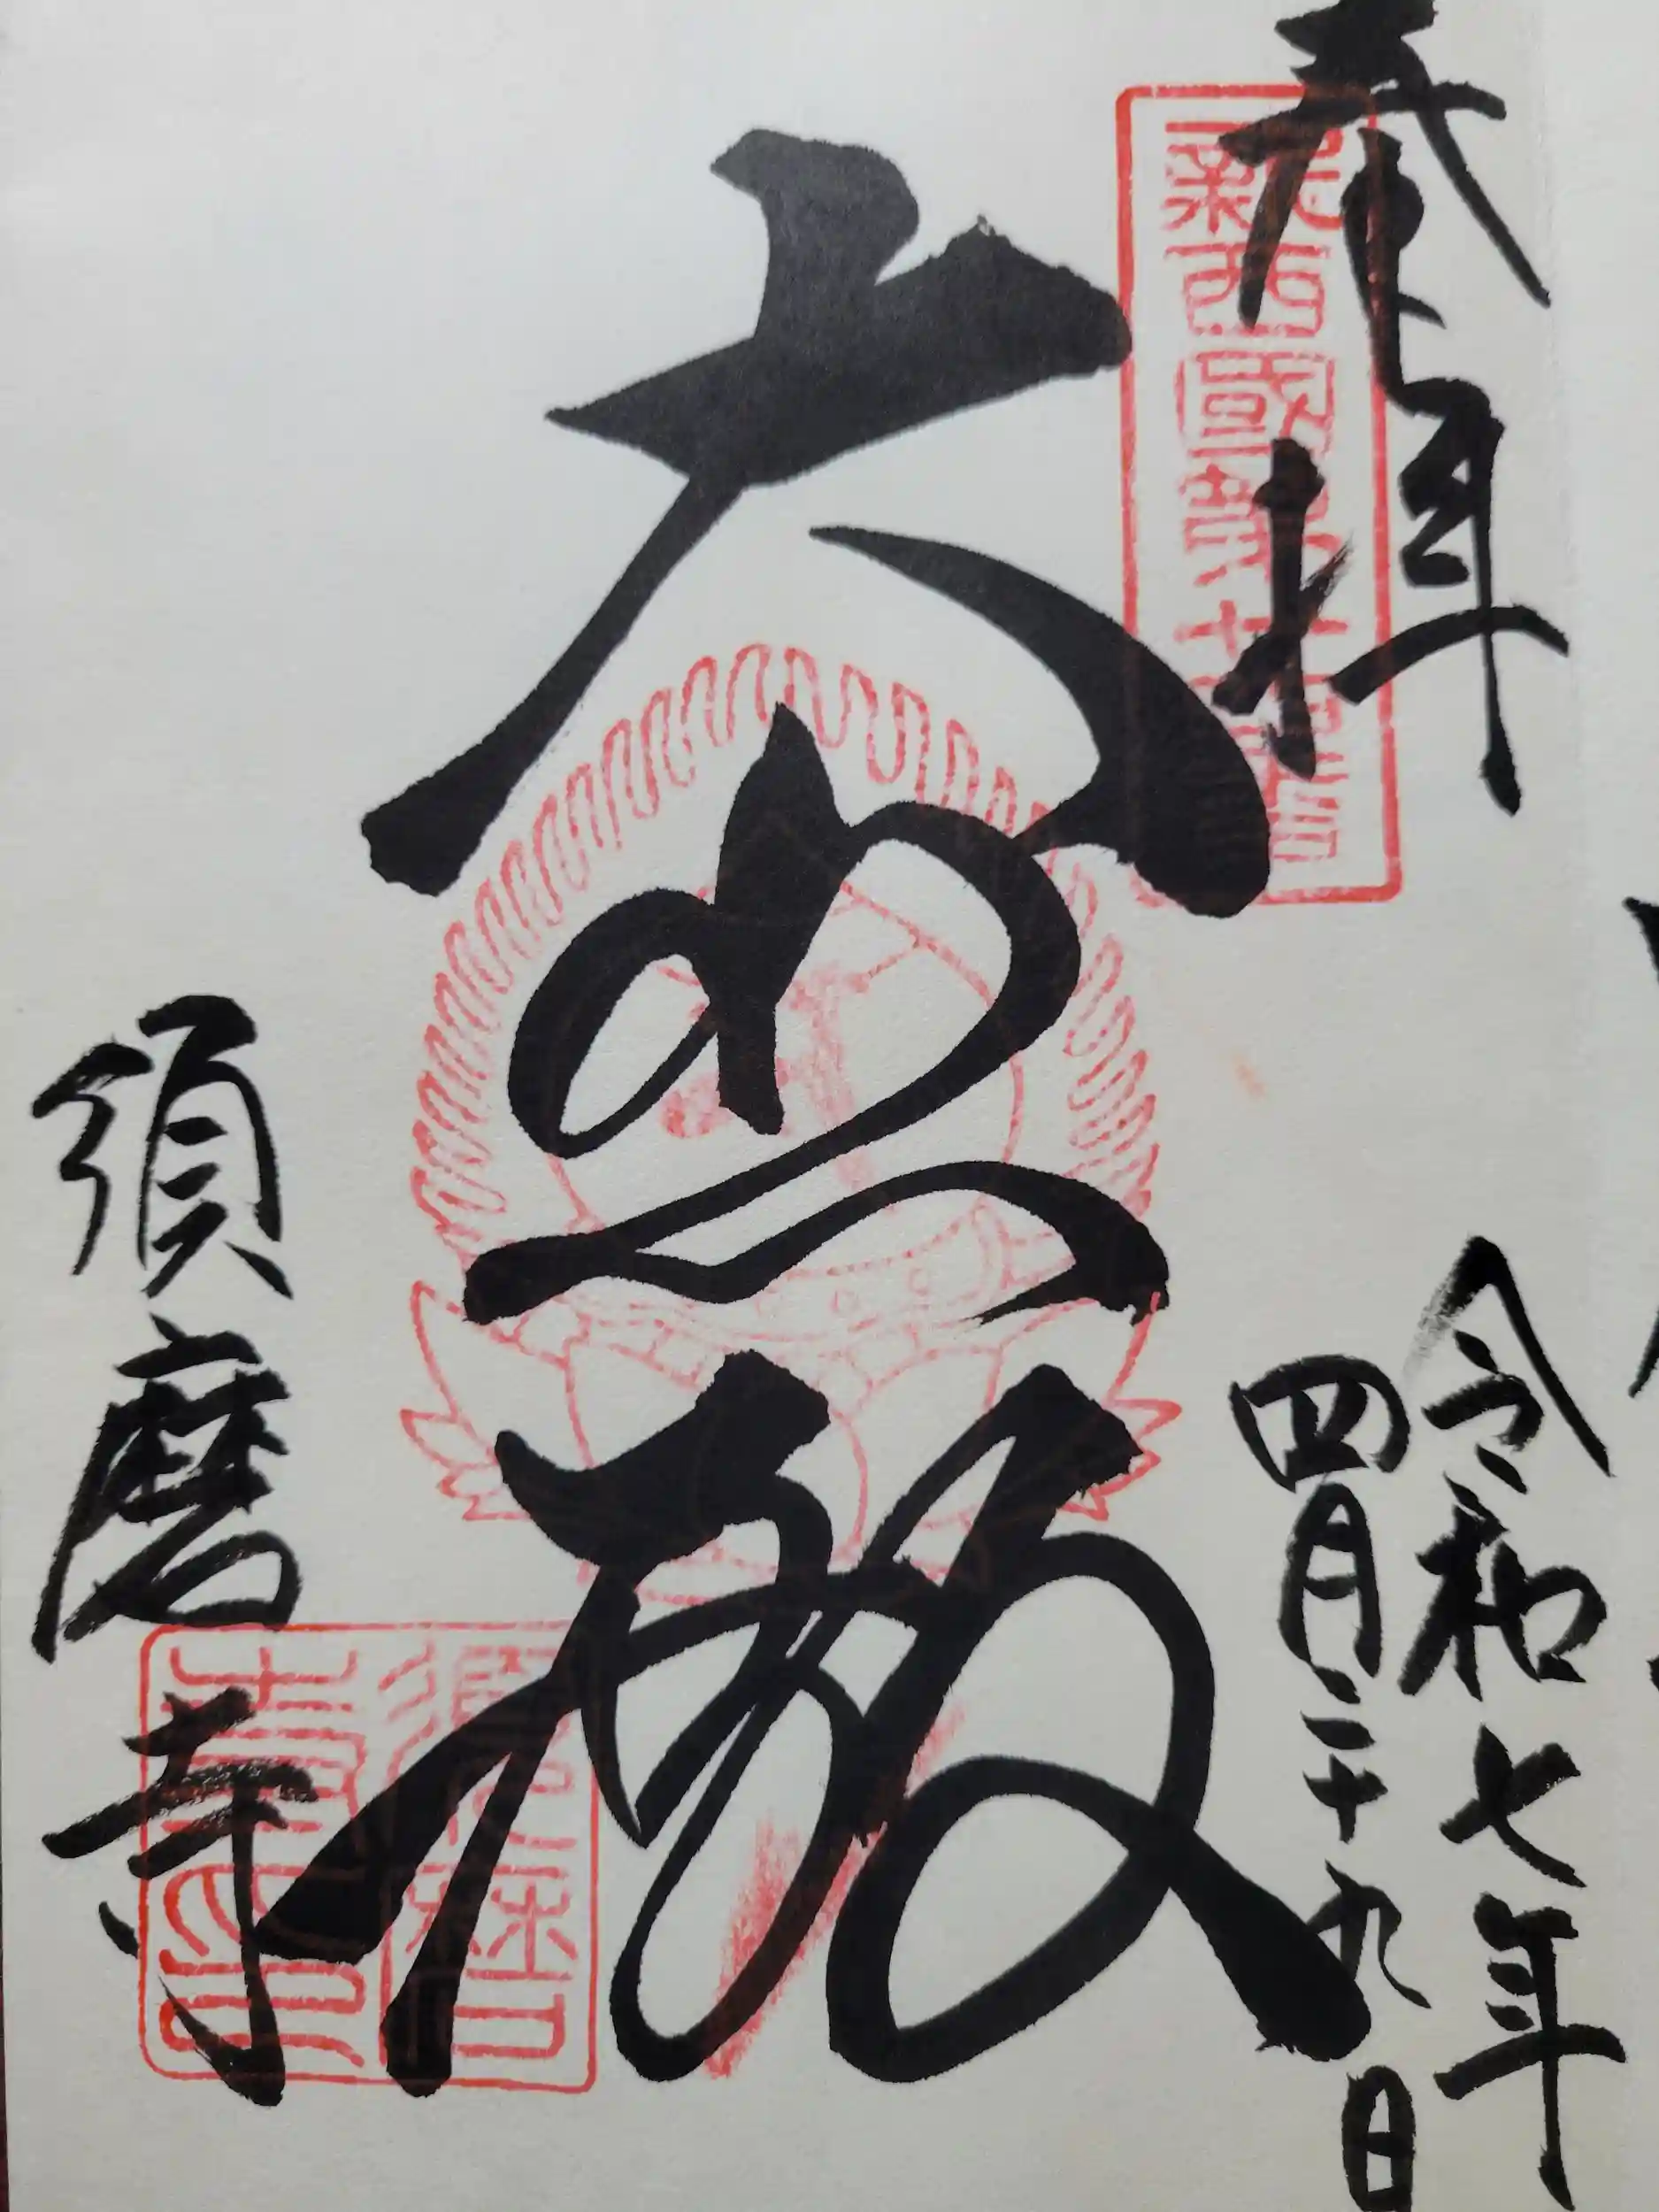 奉拝
新西國第廿四番
令和七年
四月二十九日
大悲殿
須磨寺
須磨寺印